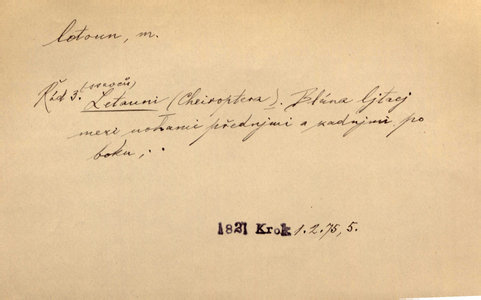 letoun, m.
(ssavců)
Řád 3. Letauni (Cheiroptera). Blána ljtacj
mezi nohami přednjmi a zadnjmi po
boku, ..
1821 Krok 1.2.75, 5.